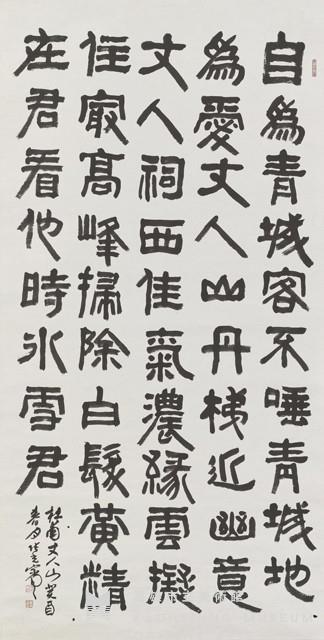 自為青城客不唾青城地
為愛丈人山丹梯近幽意
丈人祠西佳氣濃緣雲擬
住冣高峰掃除白髮黃精
在君看他時氷雪君
杜甫丈人山癸酉
春月
MUSEUM